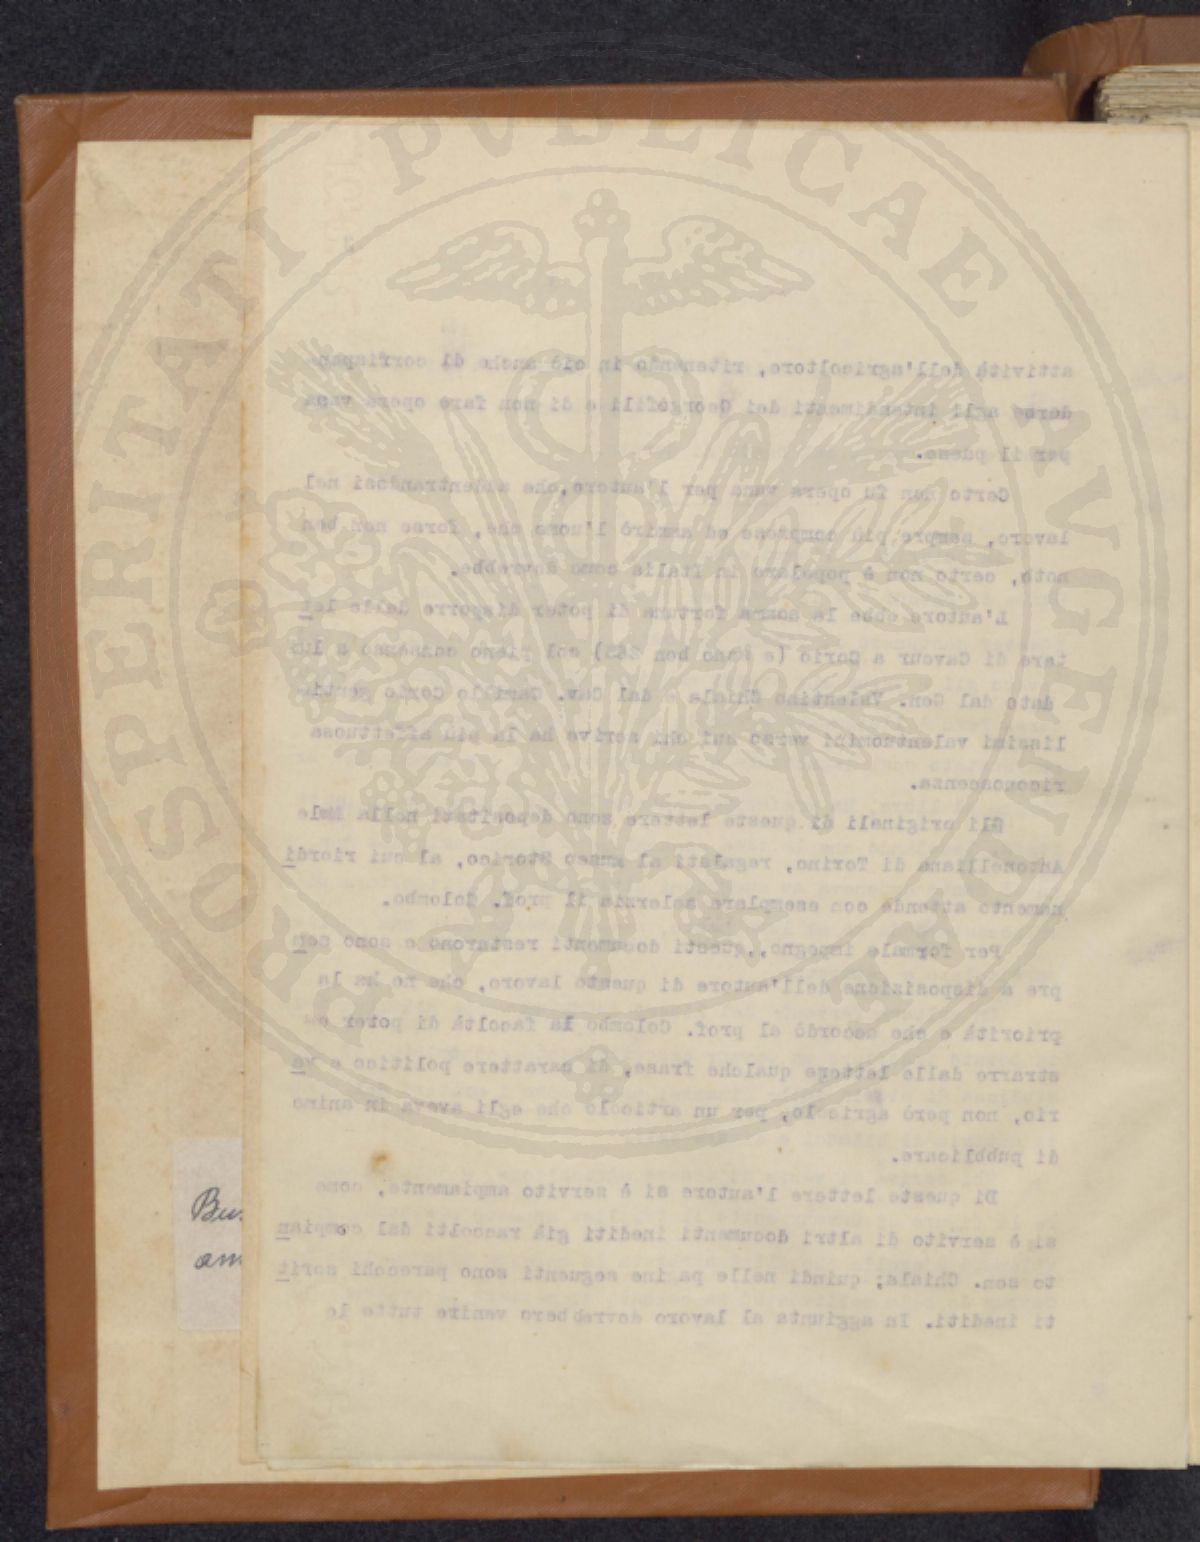 2
attività dell'agricoltore, ritenendo in ciò anche di corrispon
dere agli intendimenti dei Georgofili e di non fare opera vana
per il paese.
Certo non fu opera vana per l'autore, che addentrandosi nel
lavoro, sempre più comprese ed ammirò l'uomo che, forse non ben
noto, certo non è popolare in Italia come dovrebbe.
L'autore ebbe la somma fortuna di poter disporre delle let
tere di Cavour a Corio (e sono ben 285) col pieno consenso a lui
dato dal Gen. Valentino Chiala e dal Cav. Camillo Corio genti
lissimi valentuomini verso cui chi scrive ha la più affettuosa
riconoscenza.
Gli originali di queste lettere sono depositati nella Mole
Antonelliana di Torino, regalati al Museo Storico, al cui riordi
namento attende con esemplare solerzia il prof. Colombo.
Per formale impegno, questi documenti restarono e sono sem
pre a disposizione dell'autore di questo lavoro, che ne ha la
priorità e che accordò al prof. Colombo la facoltà di poter e
strarre dalle lettere qualche frase, di carattere politico e va
rio, non però agricolo, per un articolo che egli aveva in animo
di pubblicare.
Di queste lettere l'autore si è servito ampiamente, come
si è servito di altri documenti inediti già raccolti dal compian
to sen. Chiala; quindi nelle pa ine seguenti sono parecchi scrit
ti inediti. In aggiunta al lavoro dovrebbero venire tutte le
PROSPERITATI PVBLICAE AVGENDAE